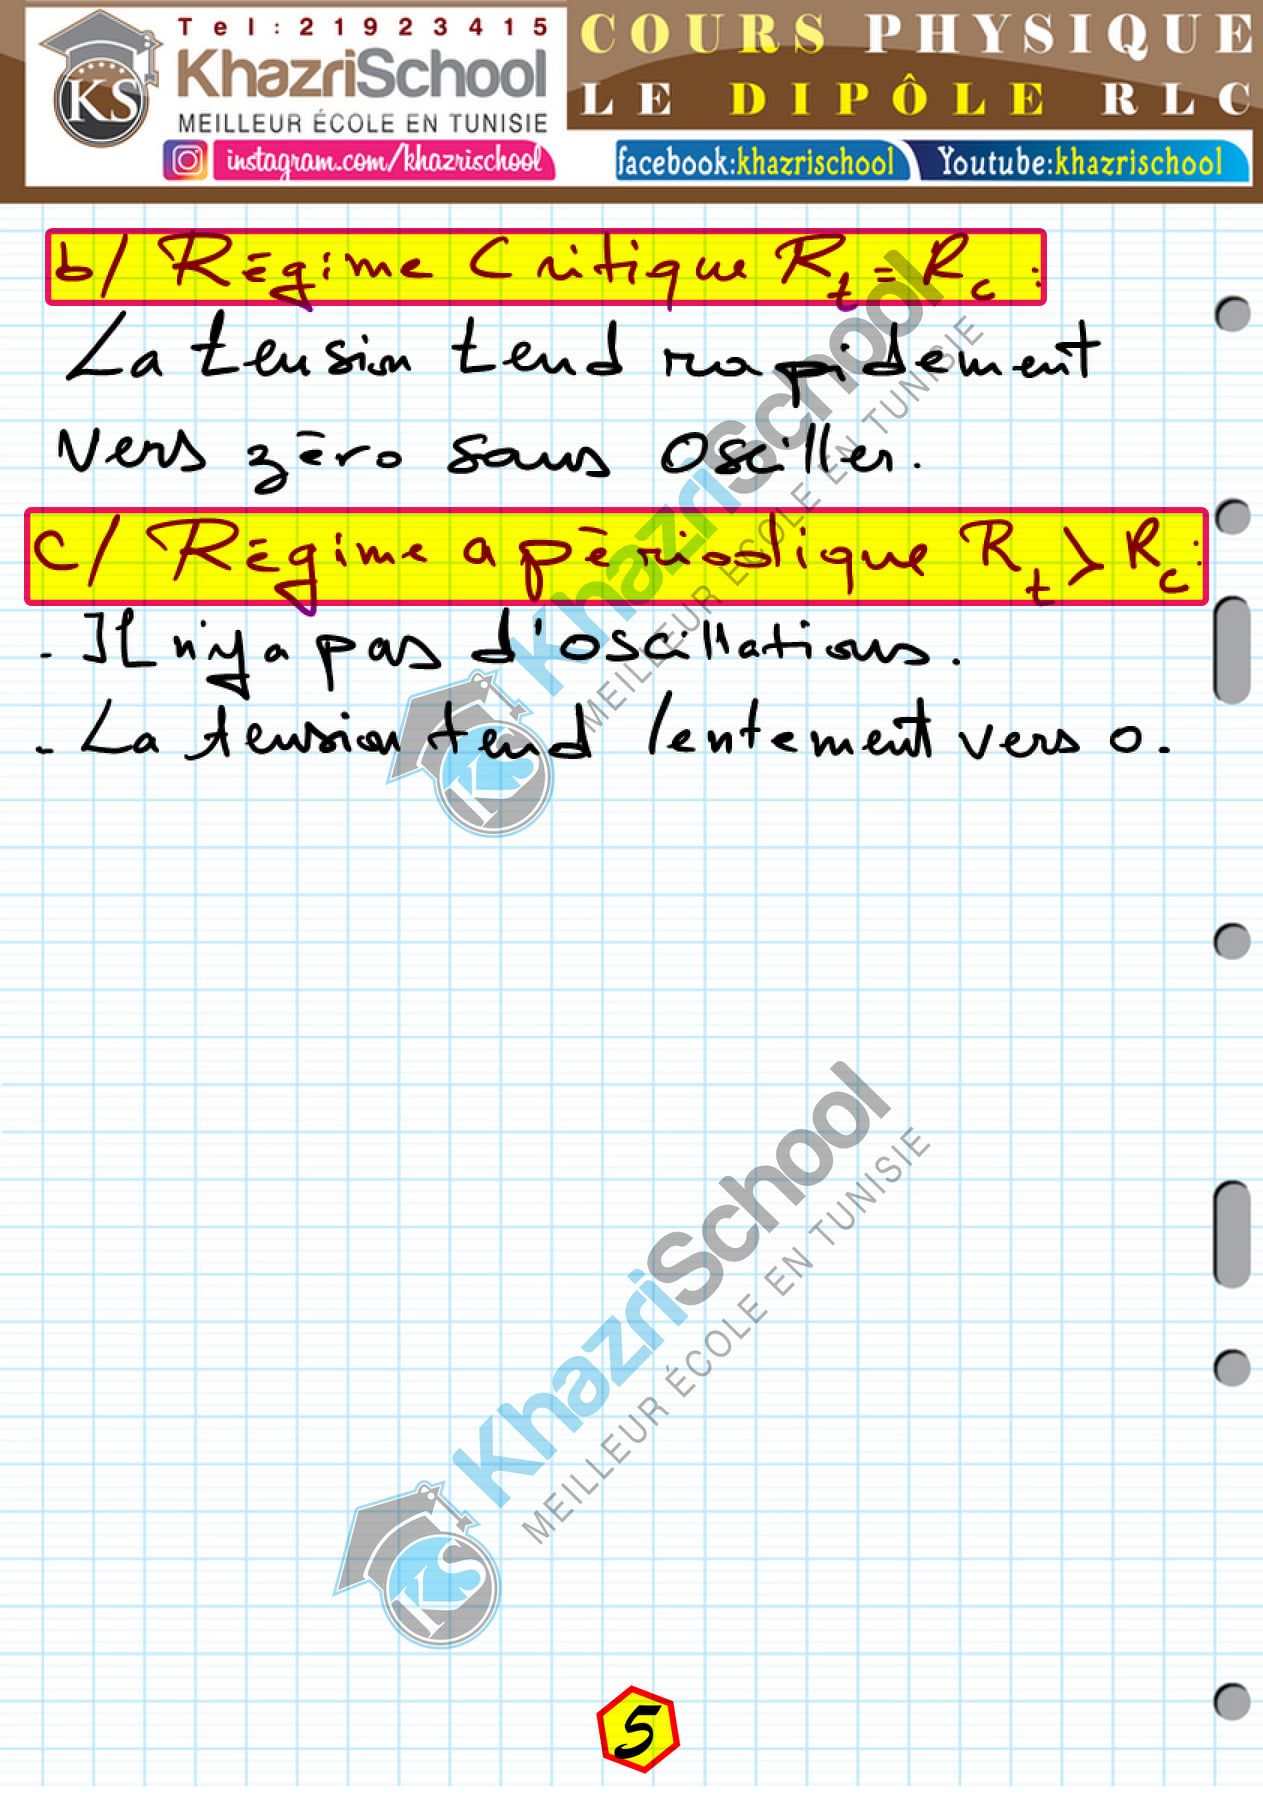 Tel:21923415
KhazriSchool
MEILLEUR ÉCOLE EN TUNISIE
KS
instagram.com/khazrischool
COURS PHYSIQUE
LE DIPÔLE RLC
facebook:khazrischool
Youtube:khazrischool
b/ Régime Critique Rt = Rc :
La tension tend rapidement
vers zéro sans osciller.
c/ Régime apériodique Rt > Rc :
- Il n'y a pas d'oscillations.
- La tension tend lentement vers 0.
KhazriSchool
MEILLEUR ÉCOLE EN TUNISIE
KS
KhazriSchool
MEILLEUR ÉCOLE EN TUNISIE
KS
5